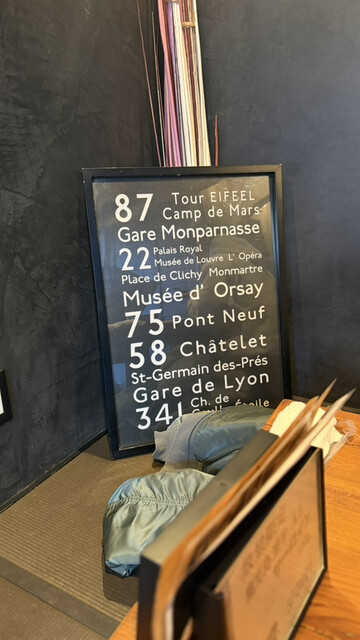 87 Tour EIFEEL
Camp de Mars
Gare Monparnasse
22 Palais Royal
Musée de Louvre L' Opéra
Place de Clichy Monmartre
Musée d' Orsay
75 Pont Neuf
58 Châtelet
St-Germain des-Prés
Gare de Lyon
341 Ch. de
Étoile